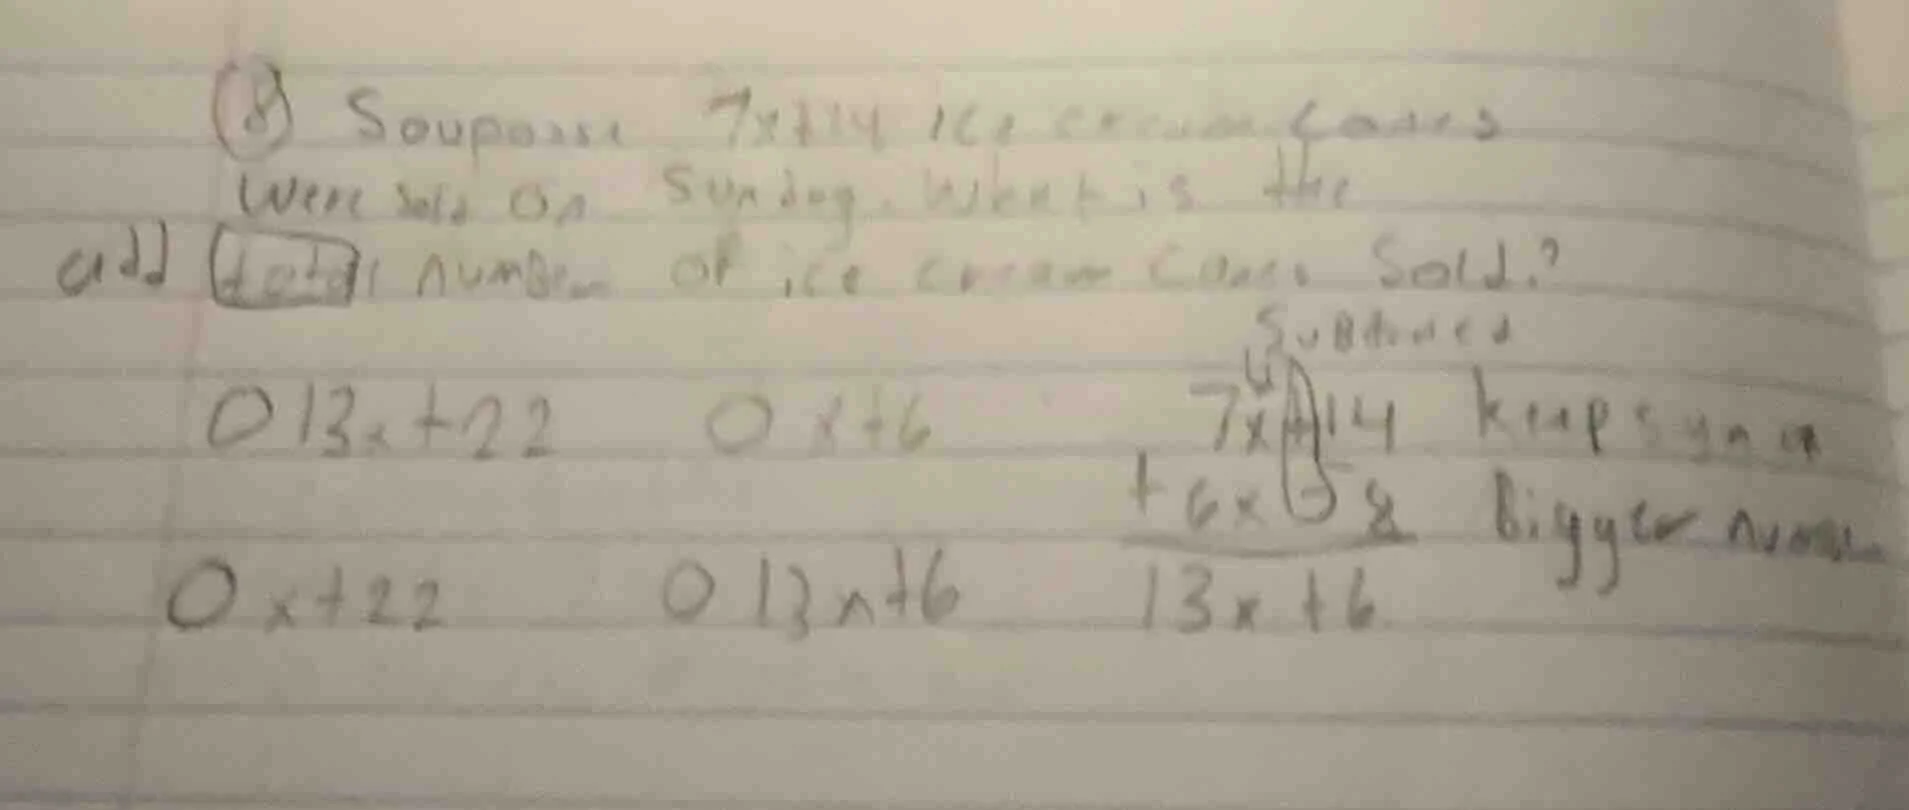 (8) Souposse 7x+14 ice cream cones
were sold on Sunday. What is the
add total number of ice cream cones sold?
O 13x+22 O x+6
O x+22 O 13x+6
Subtract
7x+14 keep sign of
+ 6x-8 Bigger number
13x+6